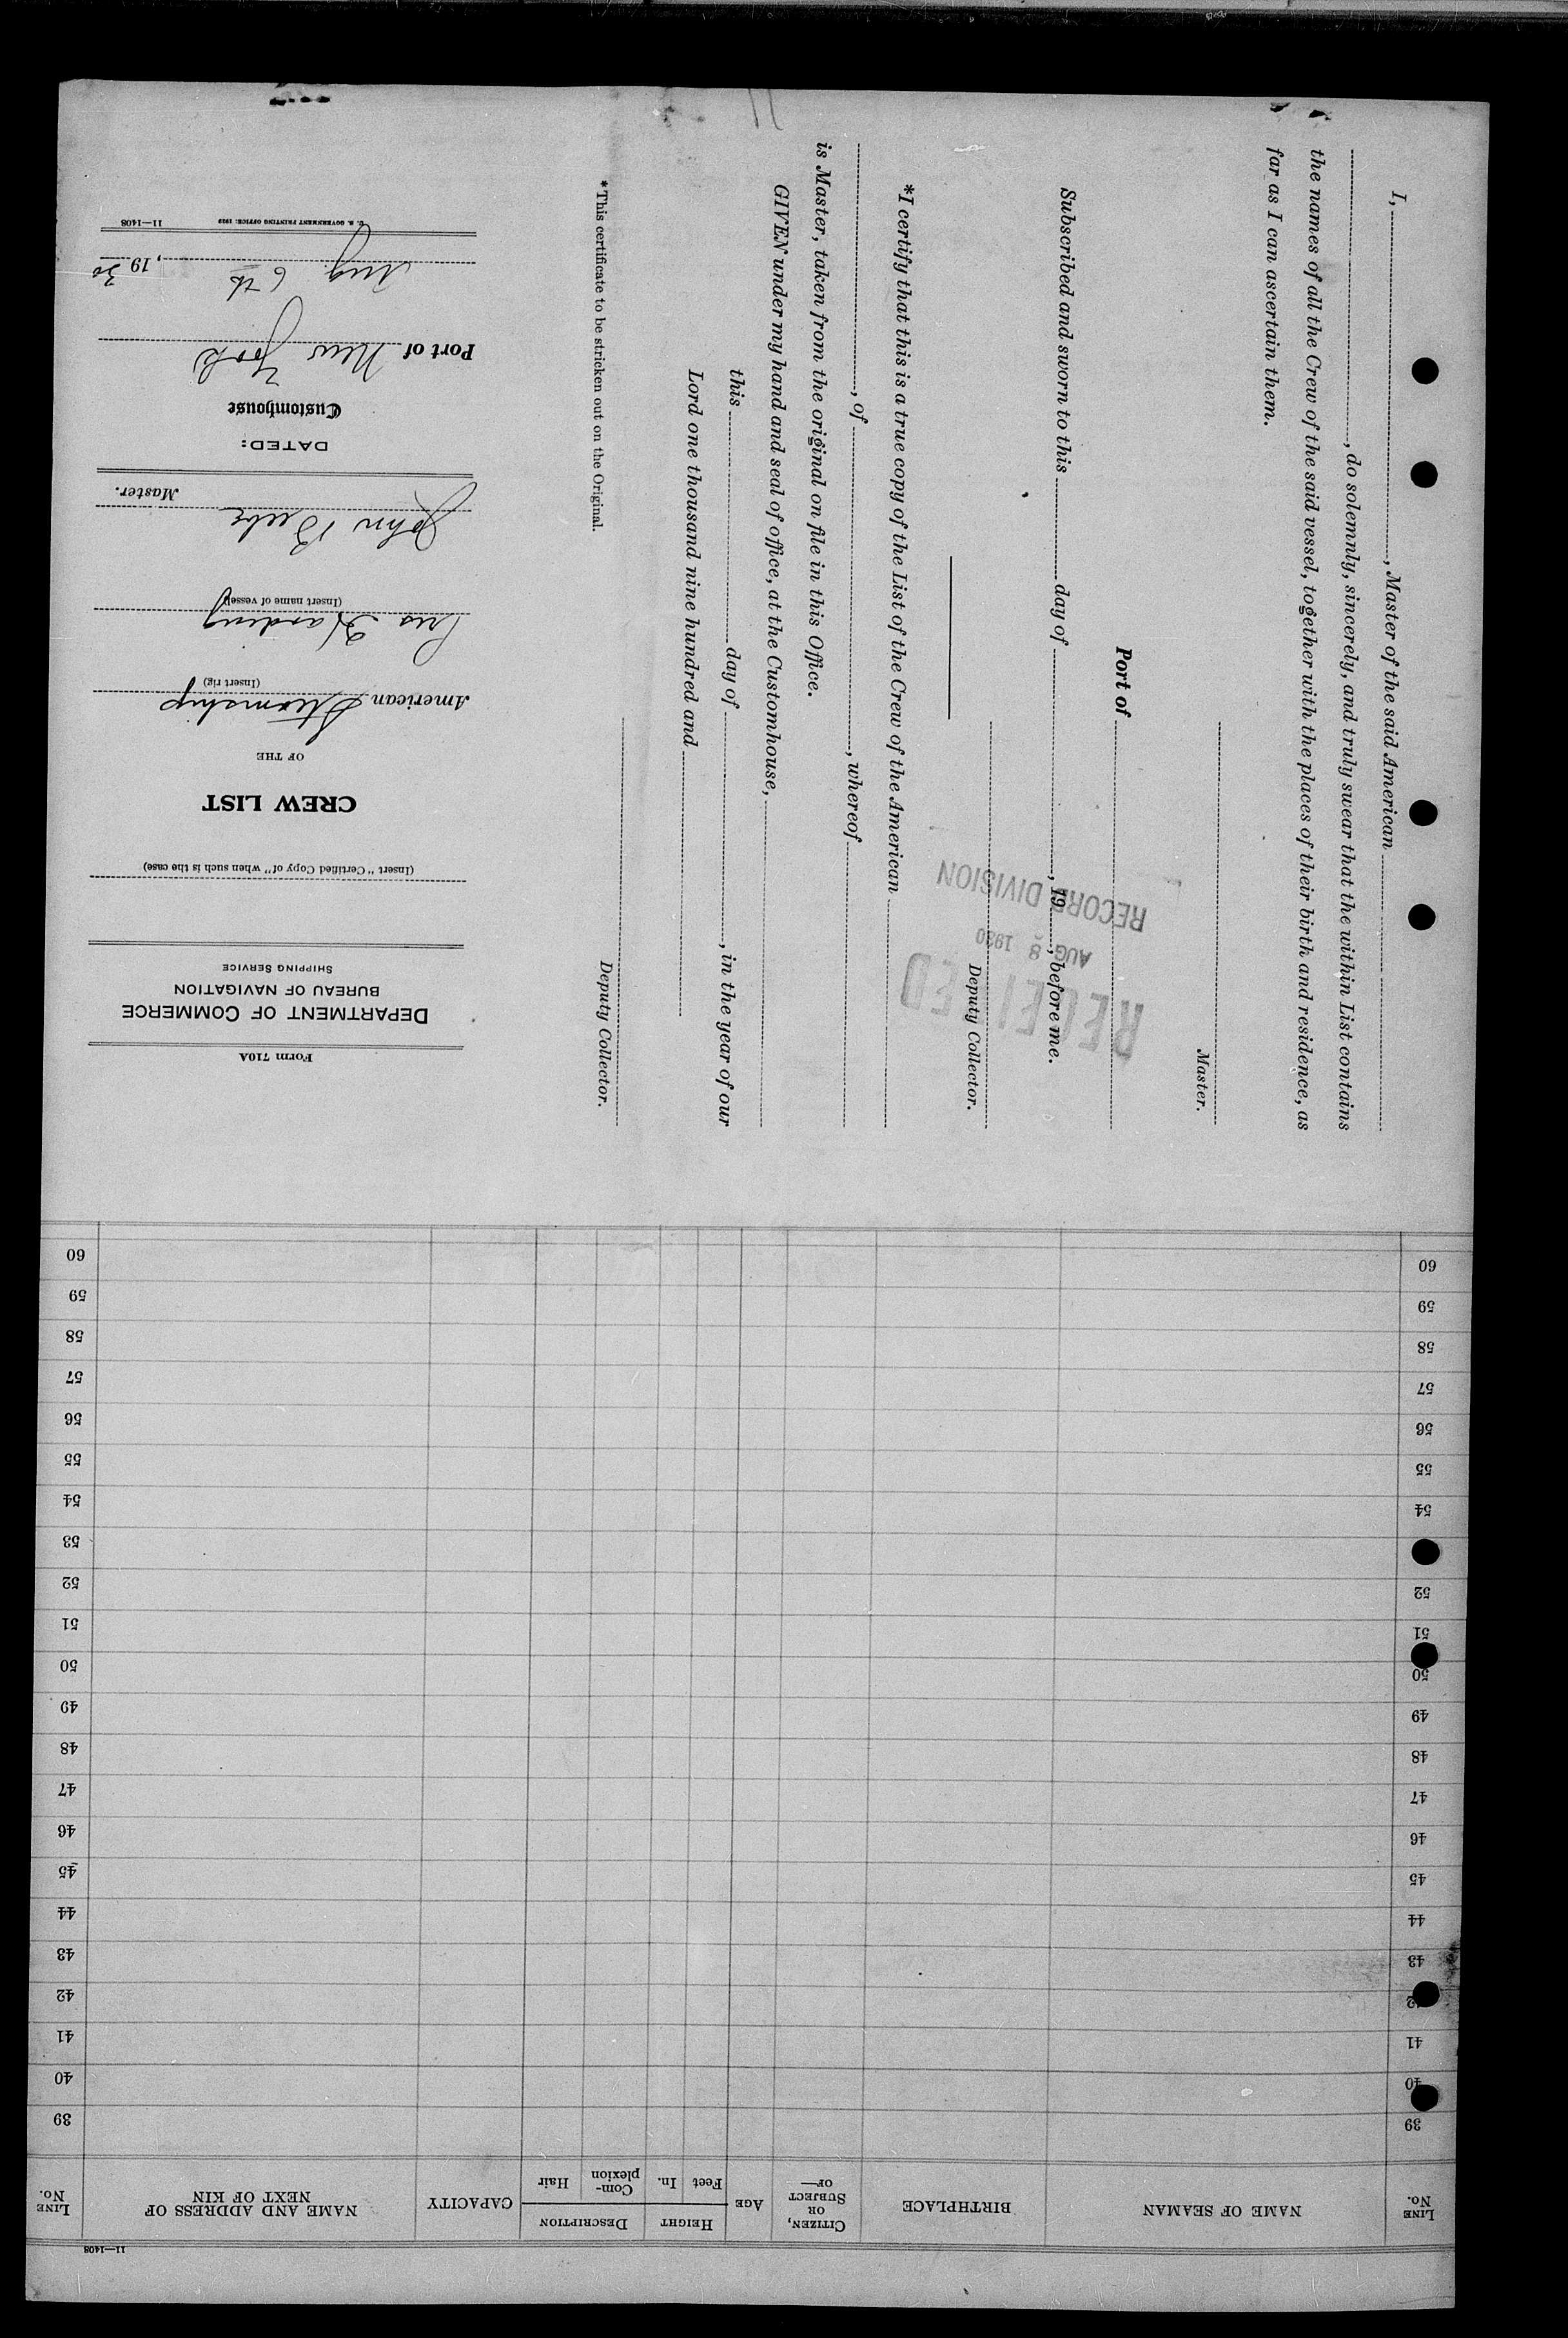 Form 710A
DEPARTMENT OF COMMERCE
BUREAU OF NAVIGATION
SHIPPING SERVICE
(Insert "Certified Copy of" when such is the case)
CREW LIST
OF THE
American Steamship
(Insert rig)
Pres Harding
(Insert name of vessel)
John
Master.
DATED:
Customhouse
Port of New York
Aug 6th, 1930
U. S. GOVERNMENT PRINTING OFFICE: 1929 11—1408
I, , Master of the said American
, do solemnly, sincerely, and truly swear that the within List contains
the names of all the Crew of the said vessel, together with the places of their birth and residence, as
far as I can ascertain them.
Master.
Port of
Subscribed and sworn to this day of , 19 , before me.
Deputy Collector.
RECEIVED
AUG 8 1930
RECORD DIVISION
*I certify that this is a true copy of the List of the Crew of the American
, of , whereof
is Master, taken from the original on file in this Office.
GIVEN under my hand and seal of office, at the Customhouse,
this day of , in the year of our
Lord one thousand nine hundred and
Deputy Collector.
*This certificate to be stricken out on the Original.
11—1408
LINE No. NAME OF SEAMAN BIRTHPLACE CITIZEN, OR SUBJECT OF— AGE HEIGHT Feet In. DESCRIPTION Com-plexion Hair CAPACITY NAME AND ADDRESS OF NEXT OF KIN LINE No.
39 39
40 40
41 41
42 42
43 43
44 44
45 45
46 46
47 47
48 48
49 49
50 50
51 51
52 52
53
54 54
55 55
56 56
57 57
58 58
59 59
60 60